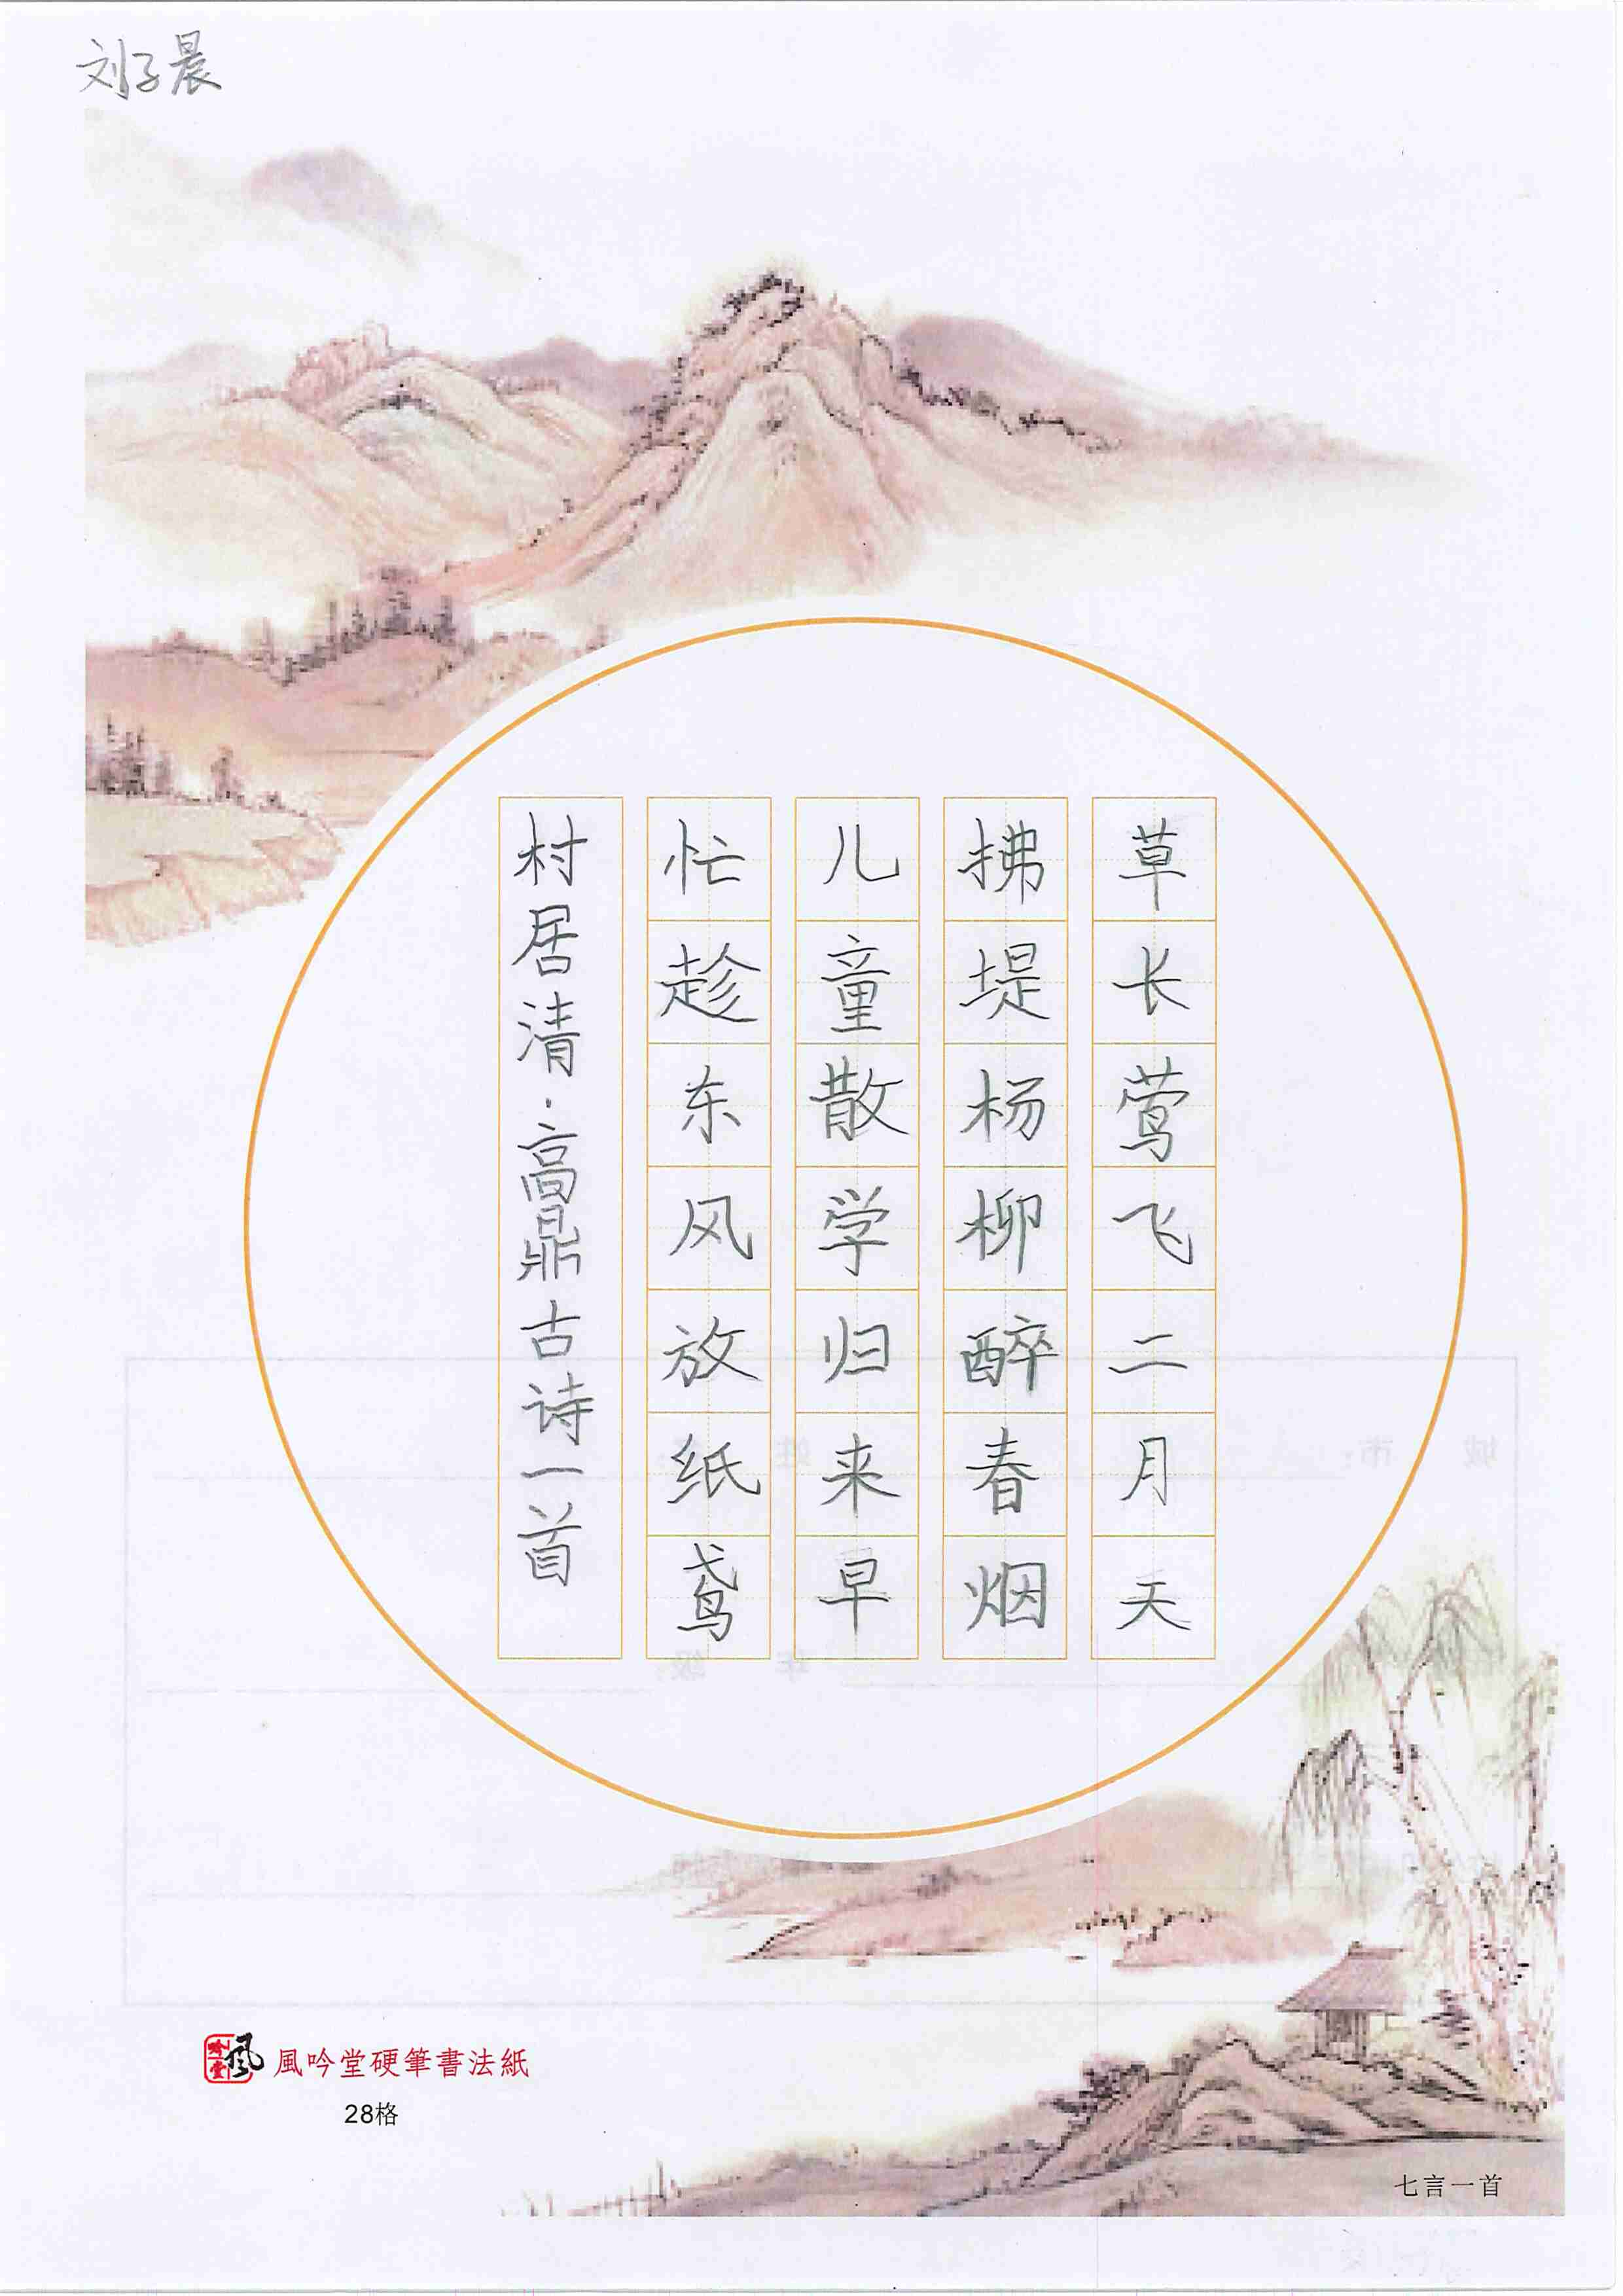 刘子晨
草长莺飞二月天
拂堤杨柳醉春烟
儿童散学归来早
忙趁东风放纸鸢
村居清·高鼎古诗一首
風吟堂硬筆書法紙
28格
七言一首